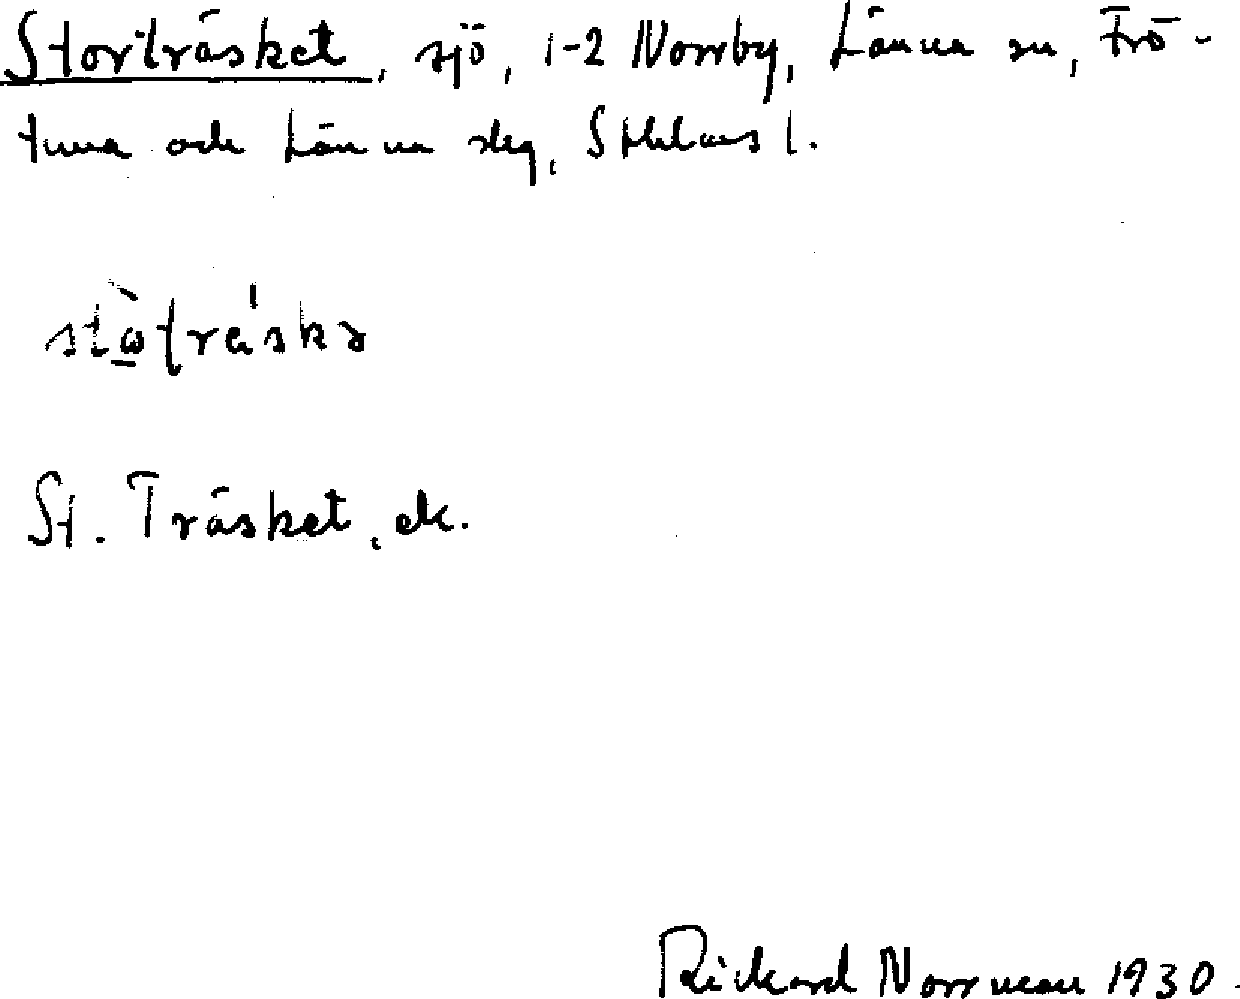 Storträsket, sjö, 1-2 Norrby, Länna sn, Frö-
tuna och Länna skg, Sthlms l.
St. Träsket, ek.
Rickard Norrman 1930.